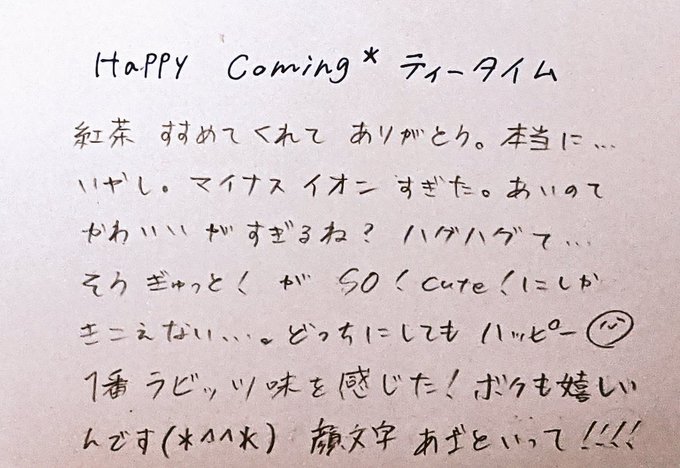 Happy Coming* ティータイム
紅茶 すすめてくれて ありがとう。本当に...
いやし。マイナスイオン すぎた。あいのて
かわいい がすぎるね? ハグハグて...
そう ぎゅっと! が SO! cute! にしか
きこえない...。どっちにしても ハッピー
1番 ラビッツ味を感じた! ボクも嬉しい
んです(*^^*) 顔文字 あざといって!!!!